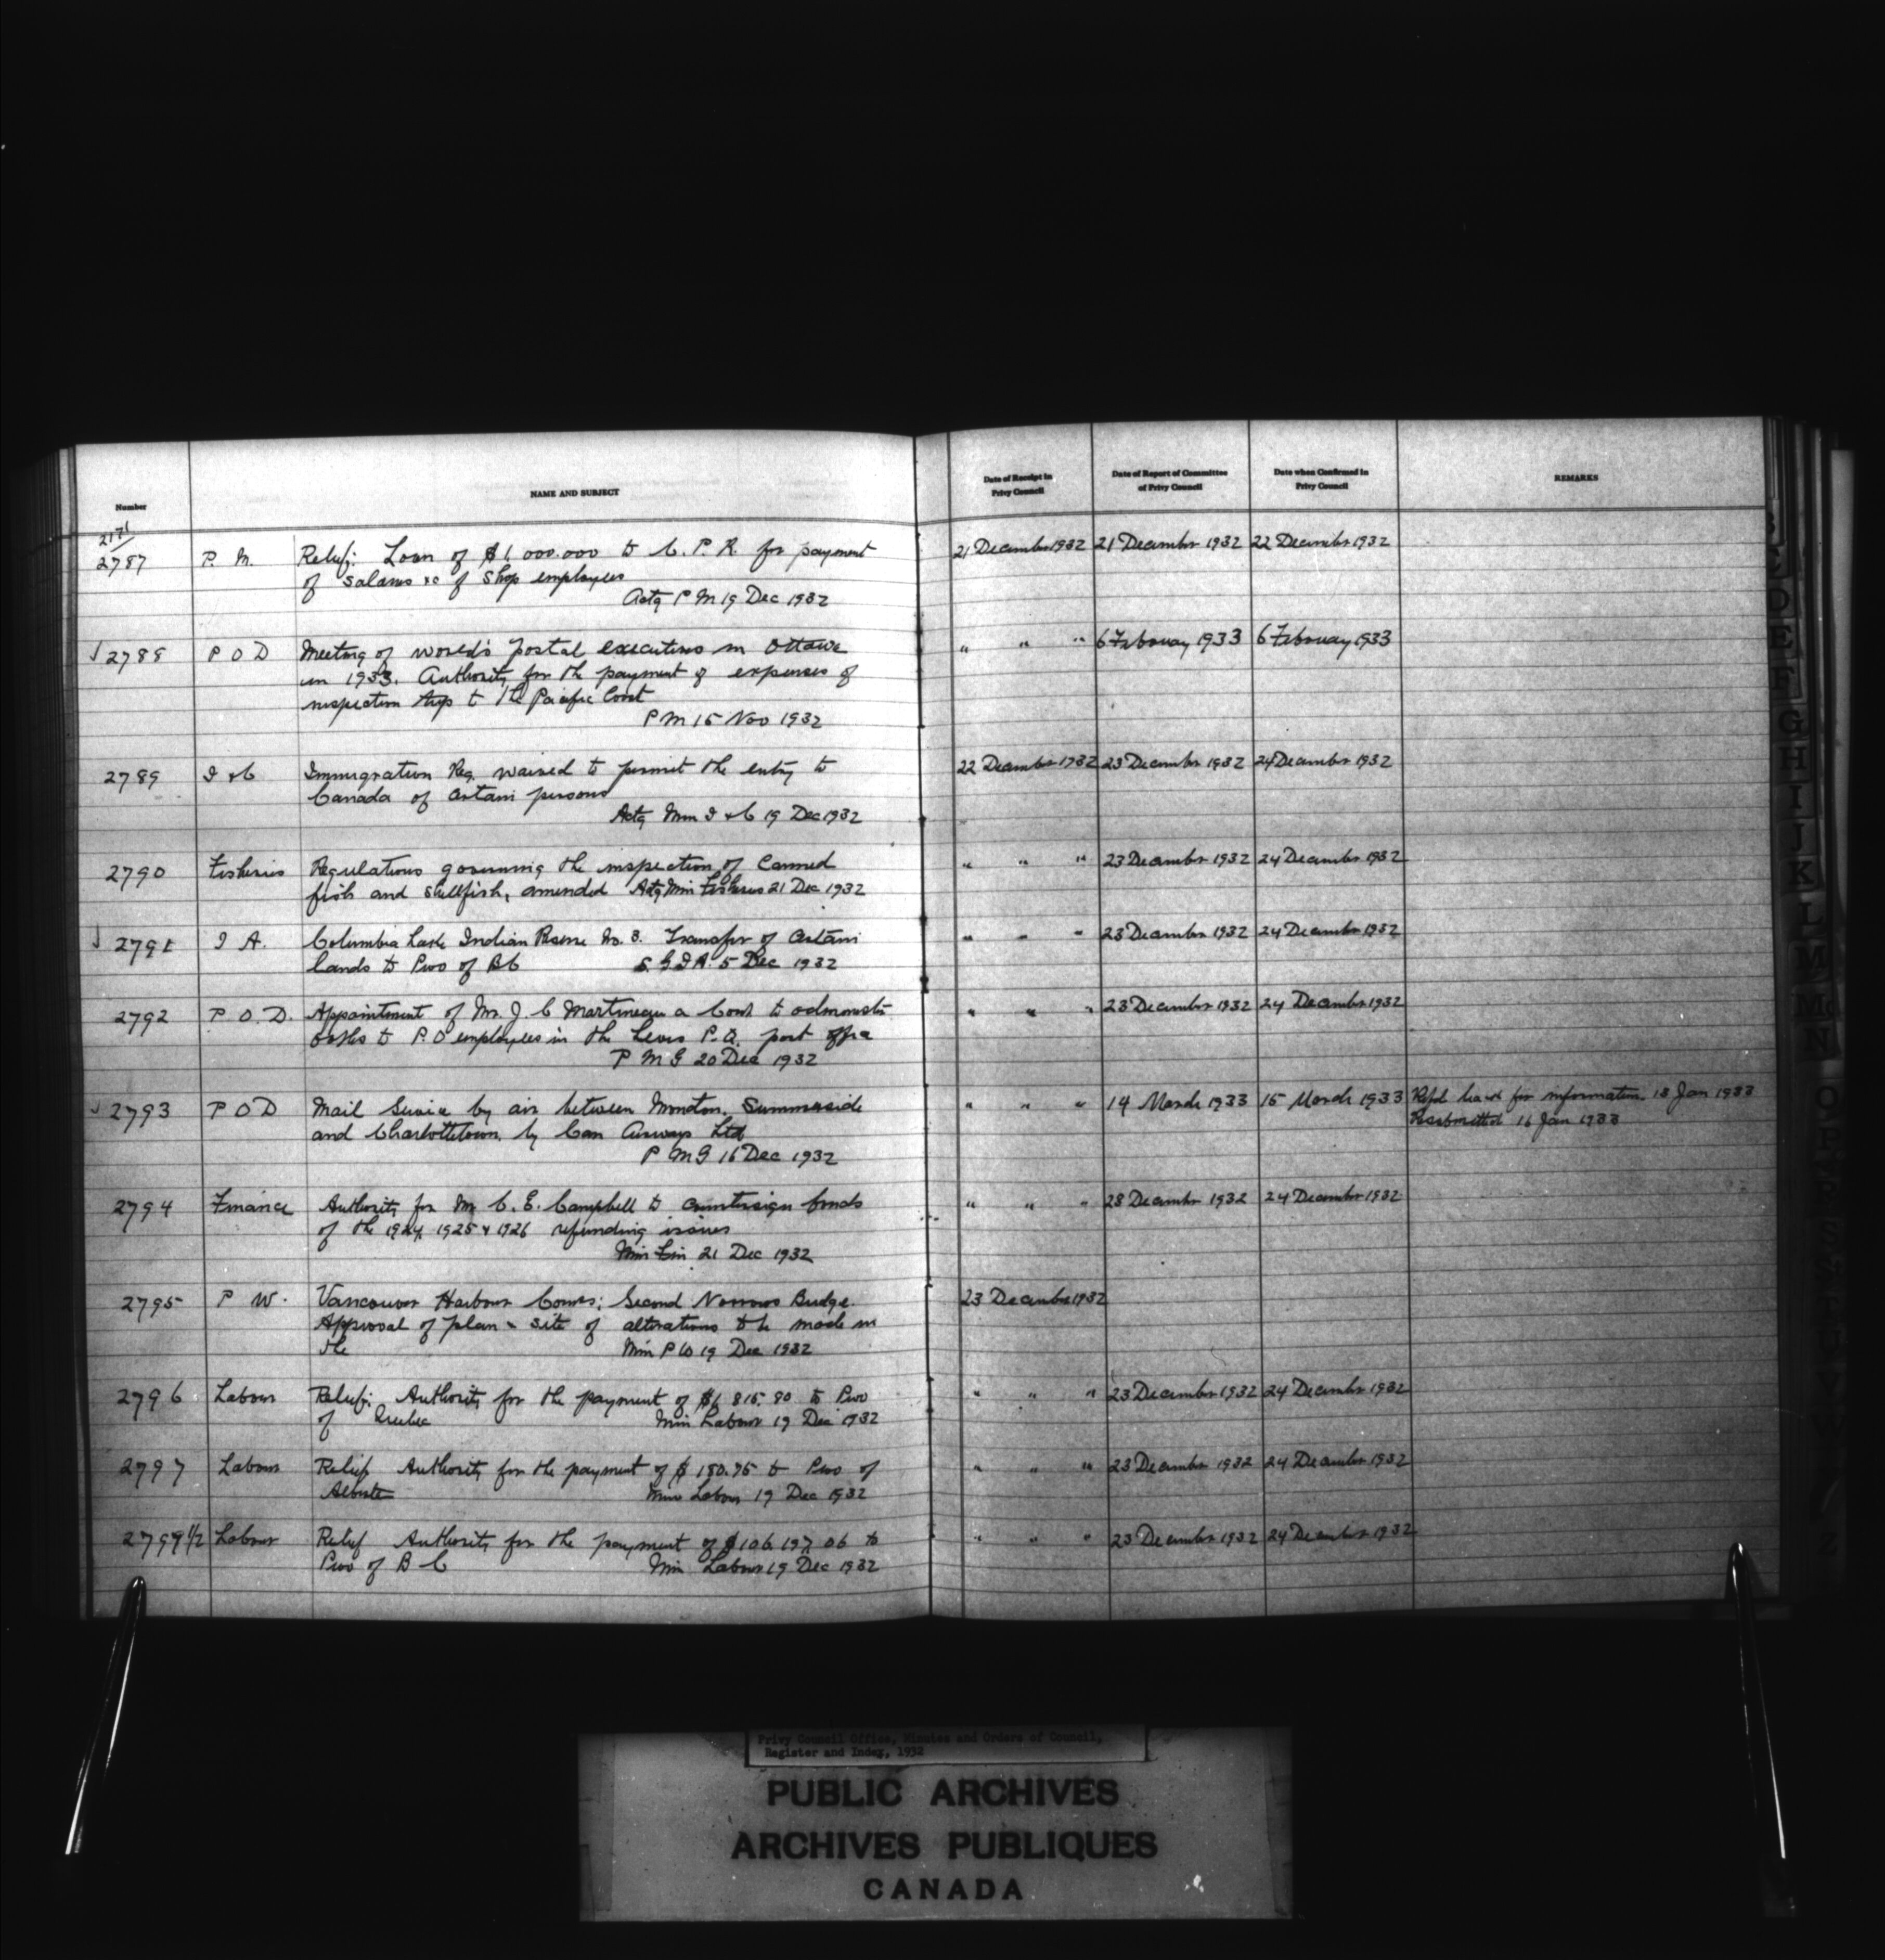 Number
NAME AND SUBJECT
Date of Receipt in Privy Council
Date of Report of Committee of Privy Council
Date when Confirmed in Privy Council
REMARKS
2171
2787 P. M. Relief: Loan of $1,000.000 to C. P. R. for payment 21 December 1932 21 December 1932 22 December 1932
of salaries &c of shop employees
Actg P M 19 Dec 1932
2788 P O D Meeting of world's postal executives in Ottawa " " " 6 February 1933 6 February 1933
in 1933. Authority for the payment of expenses of
inspection trip to the Pacific Coast
P M 15 Nov 1932
2789 I & C Immigration Reg. waived to permit the entry to 22 December 1932 23 December 1932 24 December 1932
Canada of certain persons
Actg Min I & C 19 Dec 1932
2790 Fisheries Regulations governing the inspection of Canned " " " 23 December 1932 24 December 1932
fish and shellfish, amended Actg Min Fisheries 21 Dec 1932
2791 I A. Columbia Lake Indian Reserve No. 3. Transfer of certain " " " 23 December 1932 24 December 1932
lands to Prov of BC S. G I A. 5 Dec 1932
2792 P. O. D. Appointment of Mr. J. C Martineau a Comr to administer " " " 23 December 1932 24 December 1932
oaths to P. O employees in the Levis P. Q. post office
P M G 20 Dec 1932
2793 P O D Mail Service by air between Moncton, Summerside " " " 14 March 1933 15 March 1933 Refd back for information 13 Jan 1933
and Charlottetown, by Can Airways Ltd Resubmitted 16 Jan 1933
P M G 16 Dec 1932
2794 Finance Authority for Mr C. E. Campbell to countersign bonds " " " 23 December 1932 24 December 1932
of the 1924, 1925 & 1926 refunding issues
Min Fin 21 Dec 1932
2795 P W. Vancouver Harbour Comrs; Second Narrows Bridge. 23 December 1932
Approval of plan & site of alterations to be made in
the Min P W 19 Dec 1932
2796 Labour Relief: Authority for the payment of $6 815.90 to Prov " " " 23 December 1932 24 December 1932
of Quebec Min Labour 19 Dec 1932
2797 Labour Relief Authority for the payment of $180.75 to Prov of " " " 23 December 1932 24 December 1932
Alberta Min Labour 19 Dec 1932
2797 1/2 Labour Relief Authority for the payment of $106.197.06 to " " " 23 December 1932 24 December 1932
Prov of B C Min Labour 19 Dec 1932
G
H
I
J
K
L
M
Mc
N
O
Privy Council Office, Minutes and Orders of Council,
Register and Index, 1932
PUBLIC ARCHIVES
ARCHIVES PUBLIQUES
CANADA